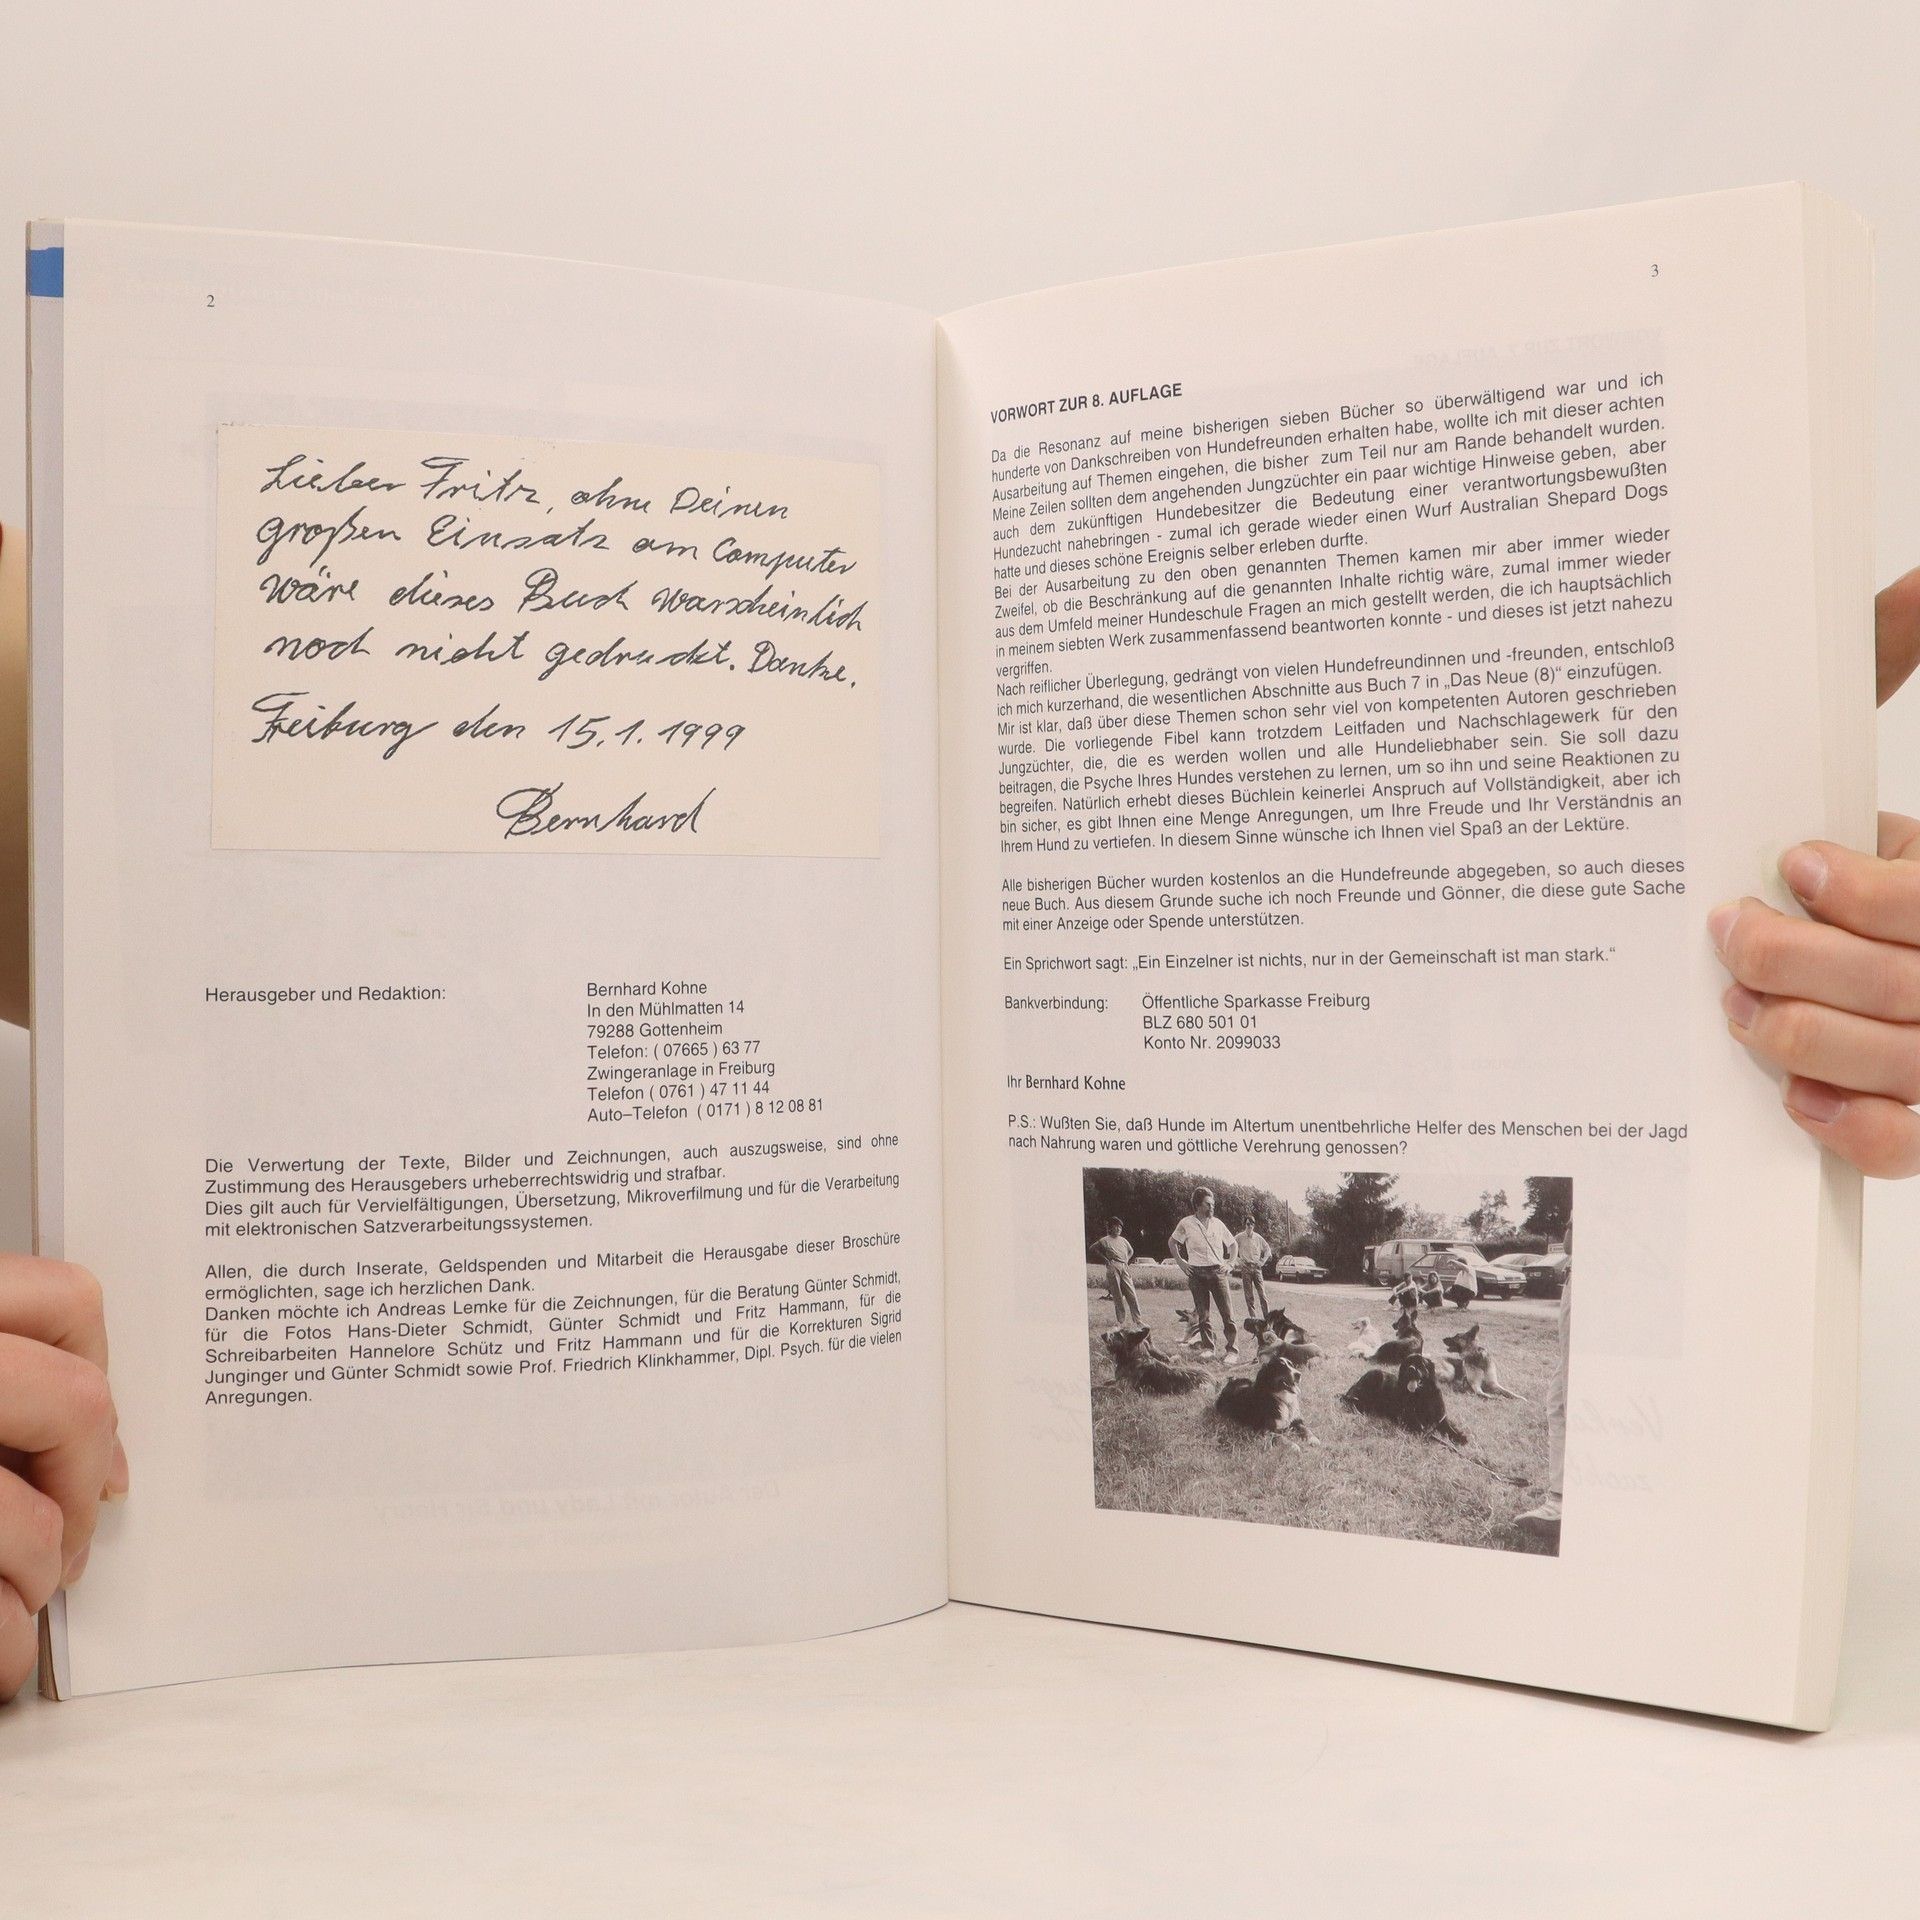 2
Lieber Fritz, ohne Deinen
großen Einsatz am Computer
wäre dieses Buch warscheinlich
noch nicht gedruckt. Danke.
Freiburg den 15.1.1999
Bernhard
Herausgeber und Redaktion:
Bernhard Kohne
In den Mühlmatten 14
79288 Gottenheim
Telefon: ( 07665 ) 63 77
Zwingeranlage in Freiburg
Telefon ( 0761 ) 47 11 44
Auto–Telefon ( 0171 ) 8 12 08 81
Die Verwertung der Texte, Bilder und Zeichnungen, auch auszugsweise, sind ohne
Zustimmung des Herausgebers urheberrechtswidrig und strafbar.
Dies gilt auch für Vervielfältigungen, Übersetzung, Mikroverfilmung und für die Verarbeitung
mit elektronischen Satzverarbeitungssystemen.
Allen, die durch Inserate, Geldspenden und Mitarbeit die Herausgabe dieser Broschüre
ermöglichten, sage ich herzlichen Dank.
Danken möchte ich Andreas Lemke für die Zeichnungen, für die Beratung Günter Schmidt,
für die Fotos Hans-Dieter Schmidt, Günter Schmidt und Fritz Hammann, für die
Schreibarbeiten Hannelore Schütz und Fritz Hammann und für die Korrekturen Sigrid
Junginger und Günter Schmidt sowie Prof. Friedrich Klinkhammer, Dipl. Psych. für die vielen
Anregungen.
3
VORWORT ZUR 8. AUFLAGE
Da die Resonanz auf meine bisherigen sieben Bücher so überwältigend war und ich
hunderte von Dankschreiben von Hundefreunden erhalten habe, wollte ich mit dieser achten
Ausarbeitung auf Themen eingehen, die bisher zum Teil nur am Rande behandelt wurden.
Meine Zeilen sollten dem angehenden Jungzüchter ein paar wichtige Hinweise geben, aber
auch dem zukünftigen Hundebesitzer die Bedeutung einer verantwortungsbewußten
Hundezucht nahebringen - zumal ich gerade wieder einen Wurf Australian Shepard Dogs
hatte und dieses schöne Ereignis selber erleben durfte.
Bei der Ausarbeitung zu den oben genannten Themen kamen mir aber immer wieder
Zweifel, ob die Beschränkung auf die genannten Inhalte richtig wäre, zumal immer wieder
aus dem Umfeld meiner Hundeschule Fragen an mich gestellt werden, die ich hauptsächlich
in meinem siebten Werk zusammenfassend beantworten konnte - und dieses ist jetzt nahezu
vergriffen.
Nach reiflicher Überlegung, gedrängt von vielen Hundefreundinnen und -freunden, entschloß
ich mich kurzerhand, die wesentlichen Abschnitte aus Buch 7 in „Das Neue (8)“ einzufügen.
Mir ist klar, daß über diese Themen schon sehr viel von kompetenten Autoren geschrieben
wurde. Die vorliegende Fibel kann trotzdem Leitfaden und Nachschlagewerk für den
Jungzüchter, die, die es werden wollen und alle Hundeliebhaber sein. Sie soll dazu
beitragen, die Psyche Ihres Hundes verstehen zu lernen, um so ihn und seine Reaktionen zu
begreifen. Natürlich erhebt dieses Büchlein keinerlei Anspruch auf Vollständigkeit, aber ich
bin sicher, es gibt Ihnen eine Menge Anregungen, um Ihre Freude und Ihr Verständnis an
Ihrem Hund zu vertiefen. In diesem Sinne wünsche ich Ihnen viel Spaß an der Lektüre.
Alle bisherigen Bücher wurden kostenlos an die Hundefreunde abgegeben, so auch dieses
neue Buch. Aus diesem Grunde suche ich noch Freunde und Gönner, die diese gute Sache
mit einer Anzeige oder Spende unterstützen.
Ein Sprichwort sagt: „Ein Einzelner ist nichts, nur in der Gemeinschaft ist man stark.“
Bankverbindung: Öffentliche Sparkasse Freiburg
BLZ 680 501 01
Konto Nr. 2099033
Ihr Bernhard Kohne
P.S.: Wußten Sie, daß Hunde im Altertum unentbehrliche Helfer des Menschen bei der Jagd
nach Nahrung waren und göttliche Verehrung genossen?